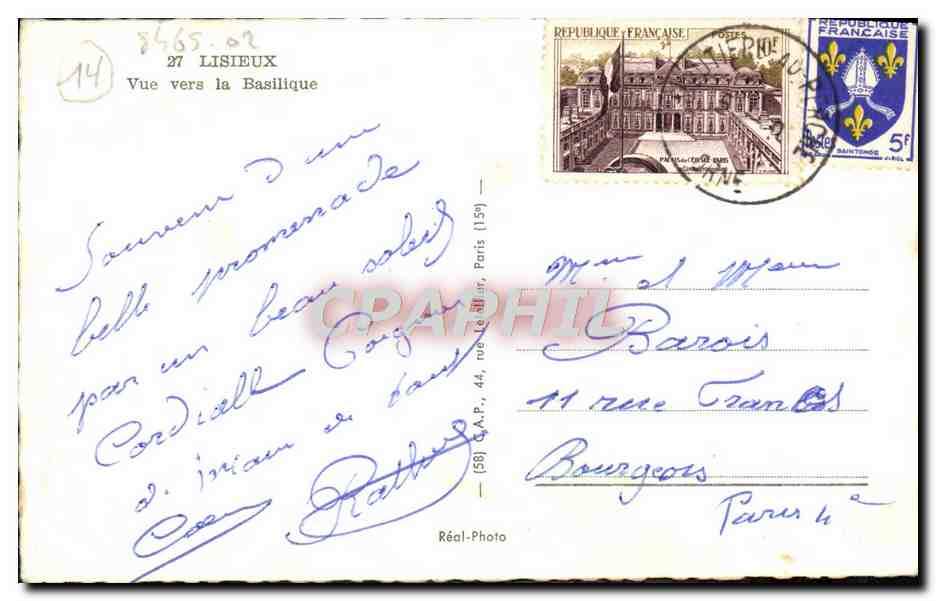 8465.02
14
27 LISIEUX
Vue vers la Basilique
Souvenir d'une
belle promenade
par un beau soleil
Cordiale
de tout
Coeur
REPUBLIQUE FRANÇAISE
POSTES
10F
PALAIS DE L'ELYSÉE PARIS
REPUBLIQUE
FRANÇAISE
Postes
5F
SAINTONGE
ORNE
CPAPHIL
(58) C.A.P., 44, rue Letellier, Paris (15e)
Mme et Mr
Barois
11 rue Francs
Bourgeois
Paris 4e
Réal-Photo